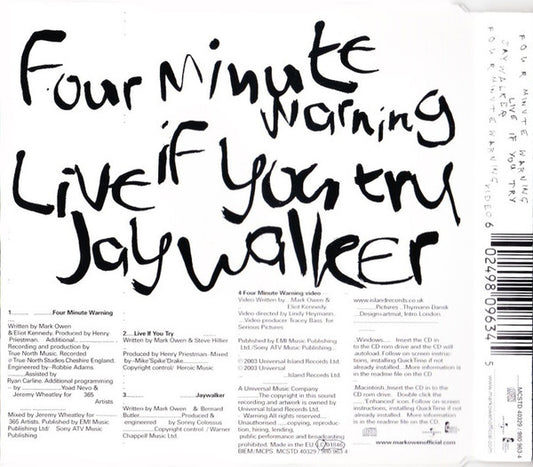 Four Minute
Warning
Live if you try
Jaywalker
1.......... .......Four Minute Warning
Written by Mark Owen
& Eliot Kennedy. Produced by Henry
Priestman. Additional.................
Recording and production by
True North Music. Recorded
at True North Studios.Cheshire England.
Engineered by -Robbie Adams
..........Assisted by
Ryan Carline. Additional programming
- by ............Yoad Nevo &
Jeremy Wheatley for 365
Artists
Mixed by Jeremy Wheatley for
365 Artists. Published by EMI Music
Publishing Ltd/ Sony ATV Music
Publishing
2....Live If You Try
Written by Mark Owen & Steve Hillier
Produced by Henry Priestman- Mixed
by -Mike'Spike'Drake.
Copyright control/ Heroic Music
3............................Jaywalker
Written by Mark Owen & Bernard
Butler. Produced &
engineered by Sonny Colossus
Copyright control / Warner
Chappell Music Ltd
4 Four Minute Warning video
Video Written by. . Mark Owen &
Eliot Kennedy.
Video directed by Lindy Heymann.
.. Video producer Tracey Bass for
Serious Pictures
Published by EMI Music Publishing
Ltd./Sony ATV Music Publishing
℗ 2003 Universal Island Records Ltd.
© 2003 Universal
Island Records Ltd.
A Universal Music Company
.The copyright in this sound
recording and artwork is owned by
Universal Island Records Ltd.
- Warning All rights reserved.
..Unauthorised ......copying,
reproduction, hiring, lending,
public performance and broadcasting
prohibited. Made in the EU
BIEM/MCPS. MCSTD 40329 / 980 963 4
www.islandrecords.co.uk
Pictures. .Thymann Dansk
...Design+artmat, Intro London.
.Windows..... Insert the CD in
to the CD rom drive and the CD will
autoload. Follow on screen instruc-
tions, installing QuickTime if not
already installed. . More information is
in the readme file on the CD
.Macintosh .Insert the CD in to
the CD rom drive. Double click the
....'Enhanced' icon. Follow on screen
instructions, installing QuickTime if not
already installed. . More information
is in the readme file on the CD
www.markowenofficial.com
FOUR MINUTE WARNING
LIVE IF YOU TRY
JAYWALKER
FOUR MINUTE WARNING VIDEO
6 02498 09634 5
MCSTD 40329 / 980 963-4